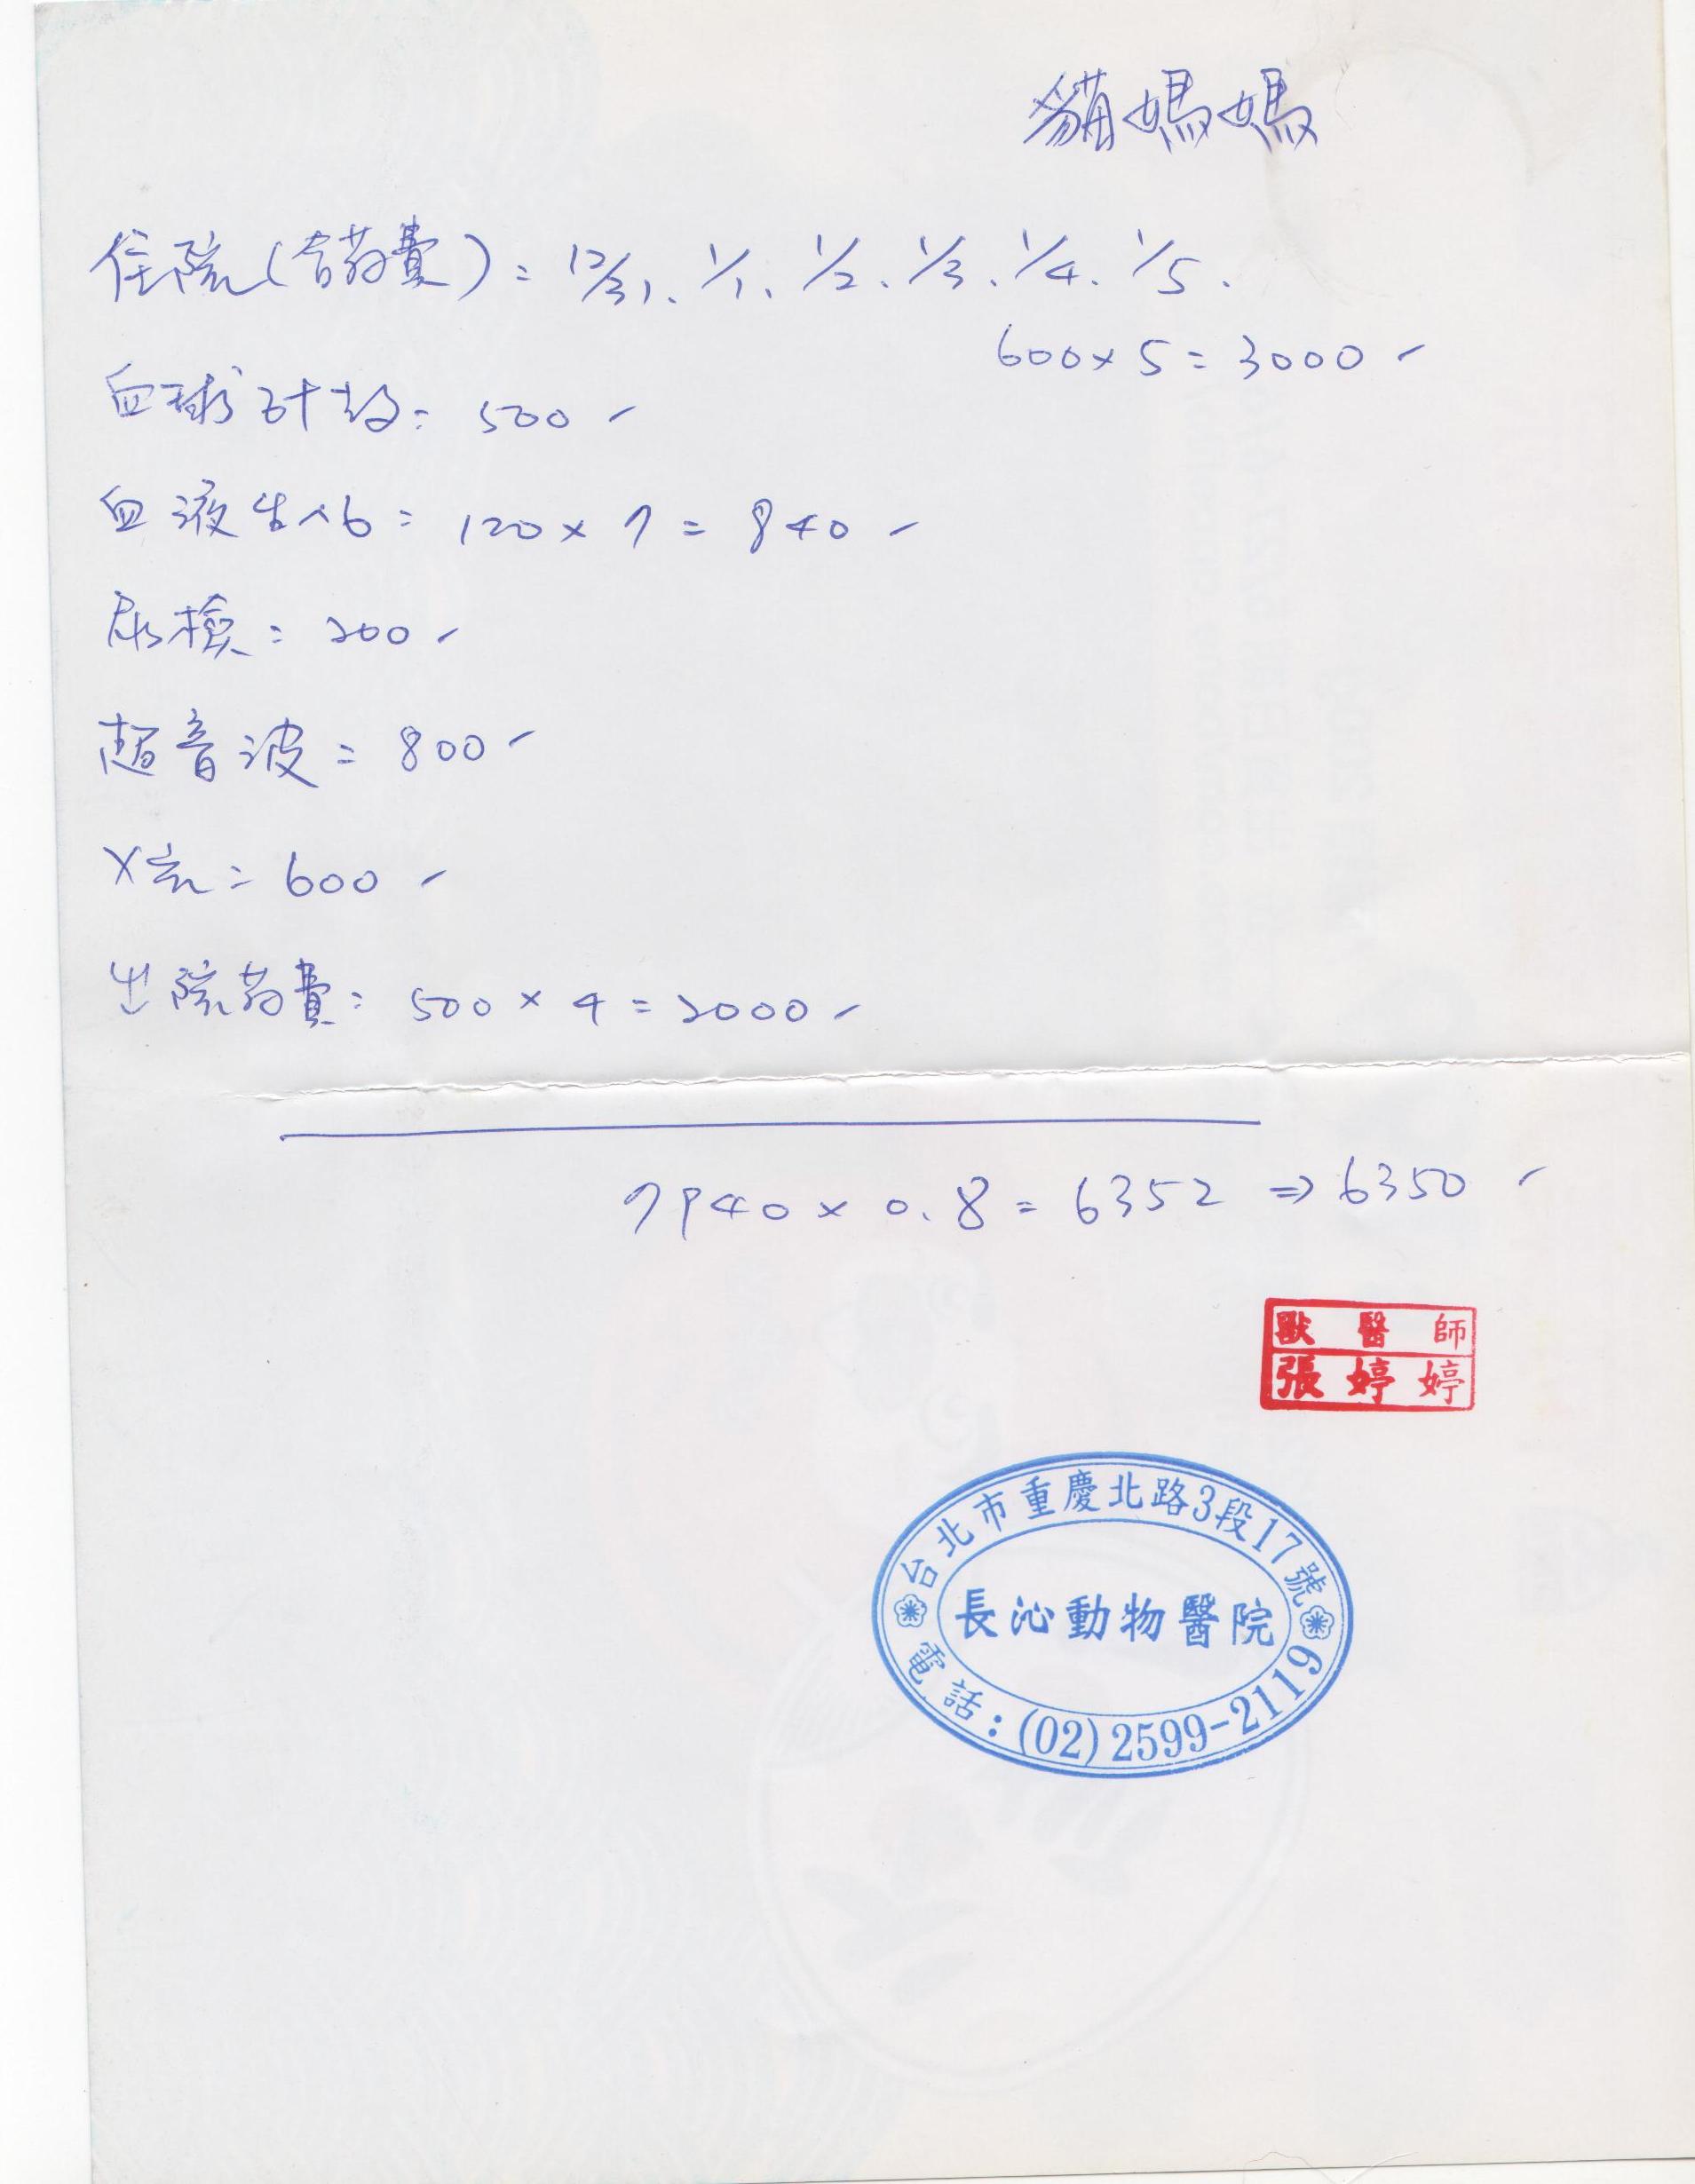 貓媽媽
住院(含葯費): 12/31、1/1、1/2、1/3、1/4、1/5、
600×5=3000
血球計数: 500
血液生化: 120×7=840
尿檢: 200
超音波: 800
X光: 600
出院葯費: 500×4=2000
7940×0.8=6352⇒6350
獸醫師
張婷婷
台北市重慶北路3段17號
長沁動物醫院
電話:(02)2599-2119